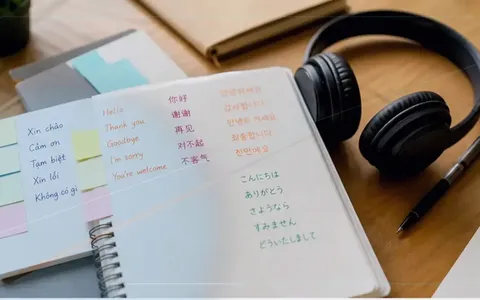 Xin chào
Cảm ơn
Tạm biệt
Xin lỗi
Không có gì
Hello
Thank you
Goodbye
I'm sorry
You're welcome
你好
谢谢
再见
对不起
不客气
안녕하세요
감사합니다
안녕히 가세요
죄송합니다
천만에요
こんにちは
ありがとう
さようなら
すみません
どういたしまして